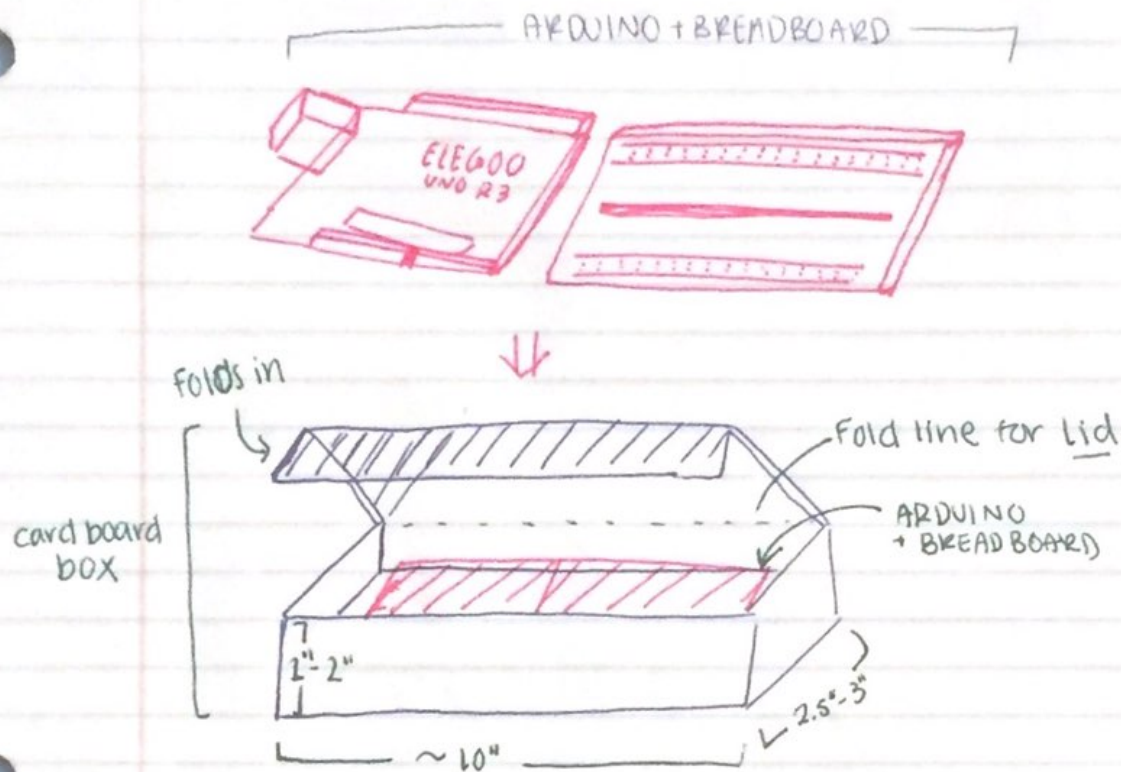 ARDUINO + BREADBOARD
ELEGOO
UNO R3
Folds in
Fold line for Lid
ARDUINO
+ BREADBOARD
card board
box
2"-2"
2.5"-3"
~ 10"